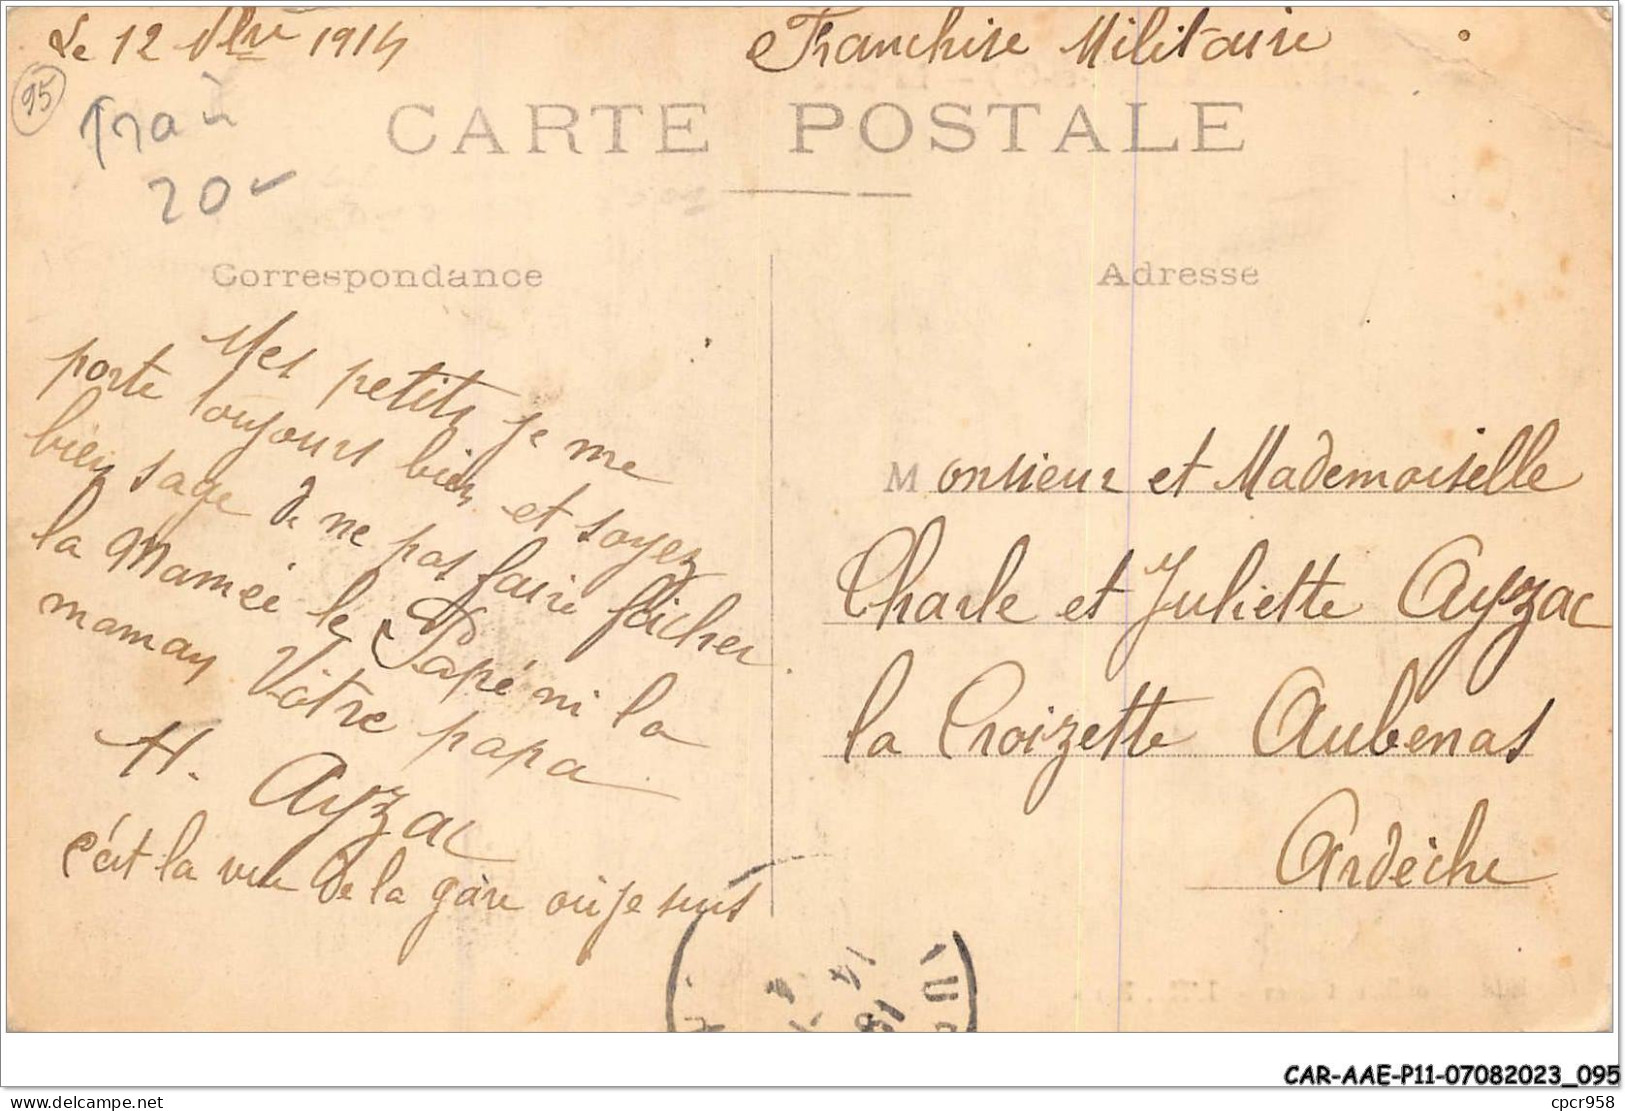 Le 12 Nbre 1914
Franchise Militaire
95
20
CARTE POSTALE
Correspondance
Adresse
Mes petits je me
porte toujours bien et soyez
bien sage de ne pas faire fâcher
la Mamée le Papé ni la
maman Vôtre papa
H. Ayzac
c'ést la vue de la gare où je suis
Monsieur et Mademoiselle
Charle et Juliette Ayzac
la Croizette Aubenas
Ardèche
CAR-AAE-P11-07082023_095
cpcr958